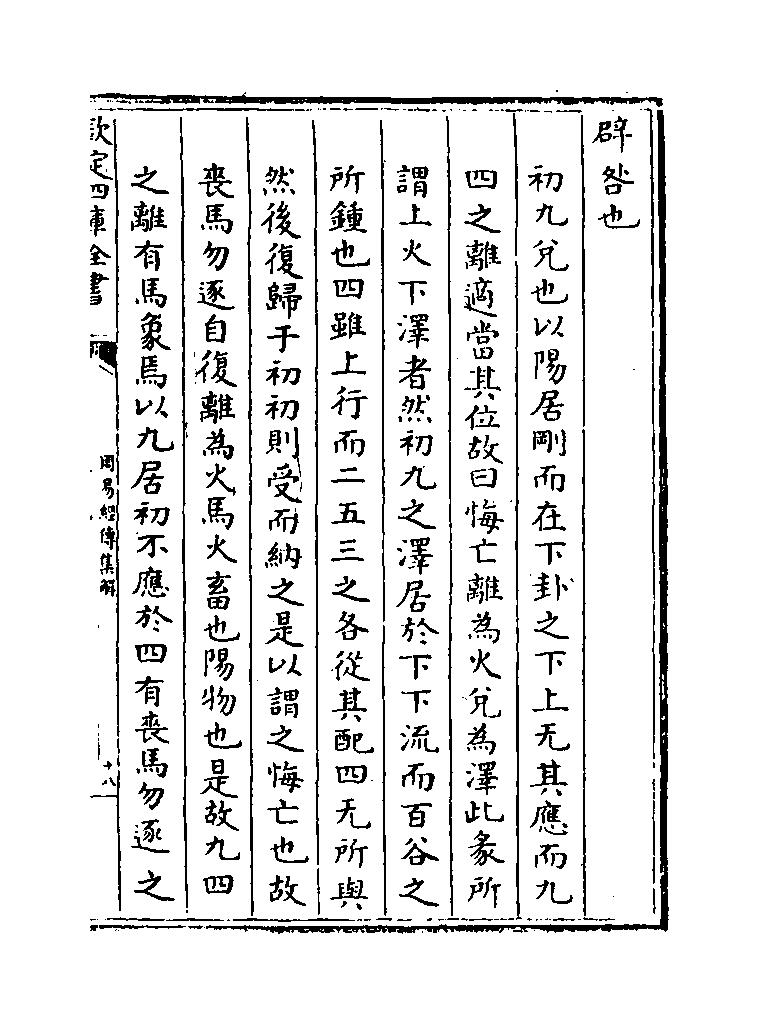 辟咎也
初九兌也以陽居剛而在下卦之下上无其應而九
四之離適當其位故曰悔亡離為火兌為澤此彖所
謂上火下澤者然初九之澤居於下下流而百谷之
所鍾也四雖上行而二五三之各從其配四无所與
然後復歸于初初則受而納之是以謂之悔亡也故
喪馬勿逐自復離為火馬火畜也陽物也是故九四
之離有馬象焉以九居初不應於四有喪馬勿逐之
欽定四庫全書
周易經傳集解
十八